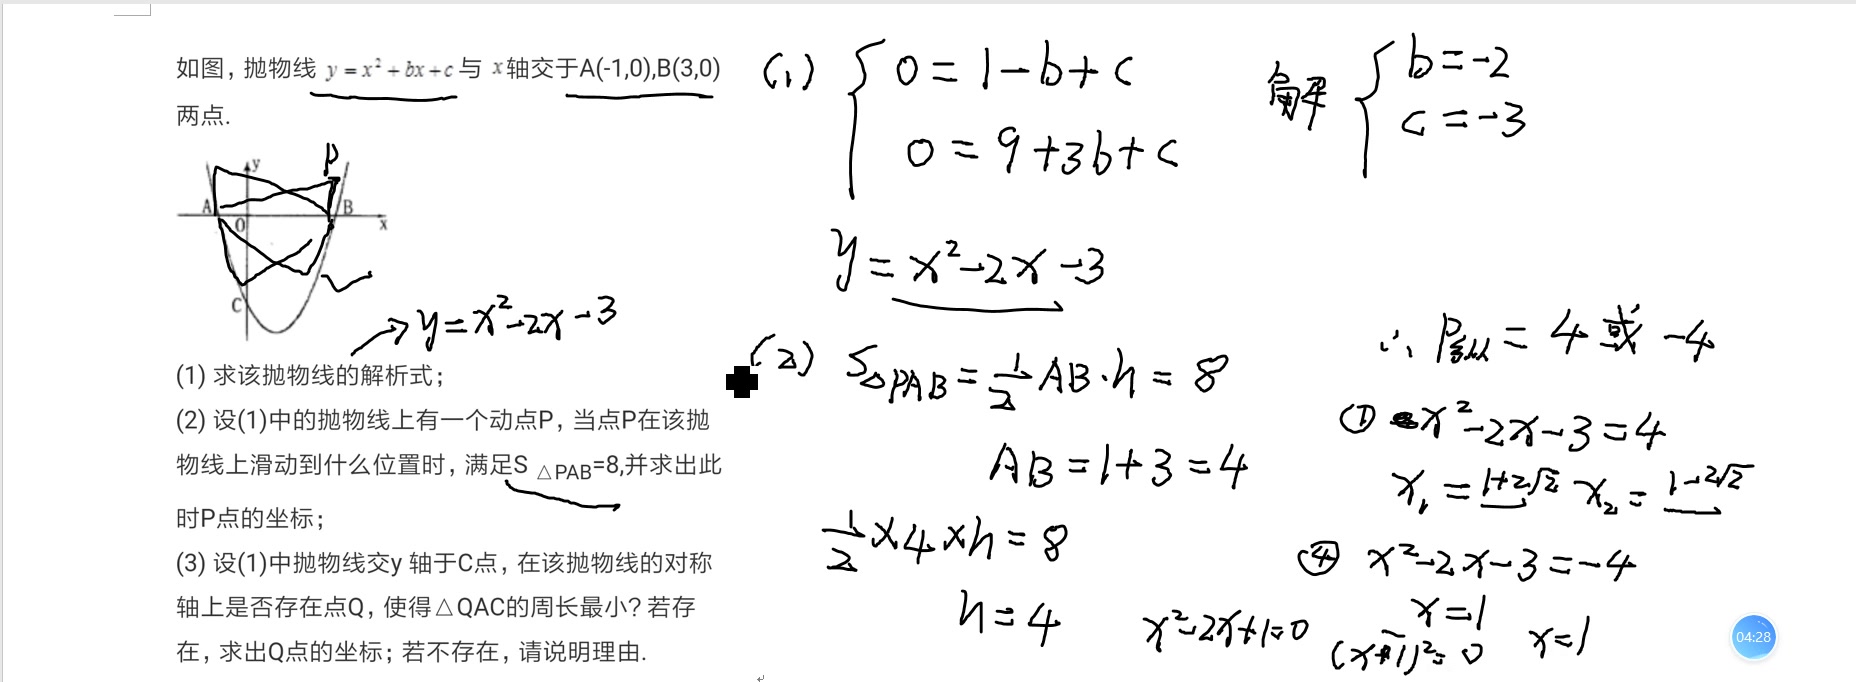 如图，抛物线 y = x² + bx + c 与 x 轴交于A(-1,0),B(3,0)
两点.
P
y
A
B
O
x
C
y=x²-2x-3
(1) 求该抛物线的解析式；
(2) 设(1)中的抛物线上有一个动点P，当点P在该抛
物线上滑动到什么位置时，满足S △PAB=8,并求出此
时P点的坐标；
(3) 设(1)中抛物线交y 轴于C点，在该抛物线的对称
轴上是否存在点Q，使得△QAC的周长最小？若存
在，求出Q点的坐标；若不存在，请说明理由.
(1) { 0=1-b+c
0=9+3b+c
解 { b=-2
c=-3
y=x²-2x-3
(2) S△PAB=1/2 AB·h=8
AB=1+3=4
1/2×4×h=8
h=4
∴ P纵=4或-4
① x²-2x-3=4
x₁=1+2√2 x₂=1-2√2
x²-2x-3=-4
x=1
x²-2x+1=0
(x-1)²=0 x=1
04:28